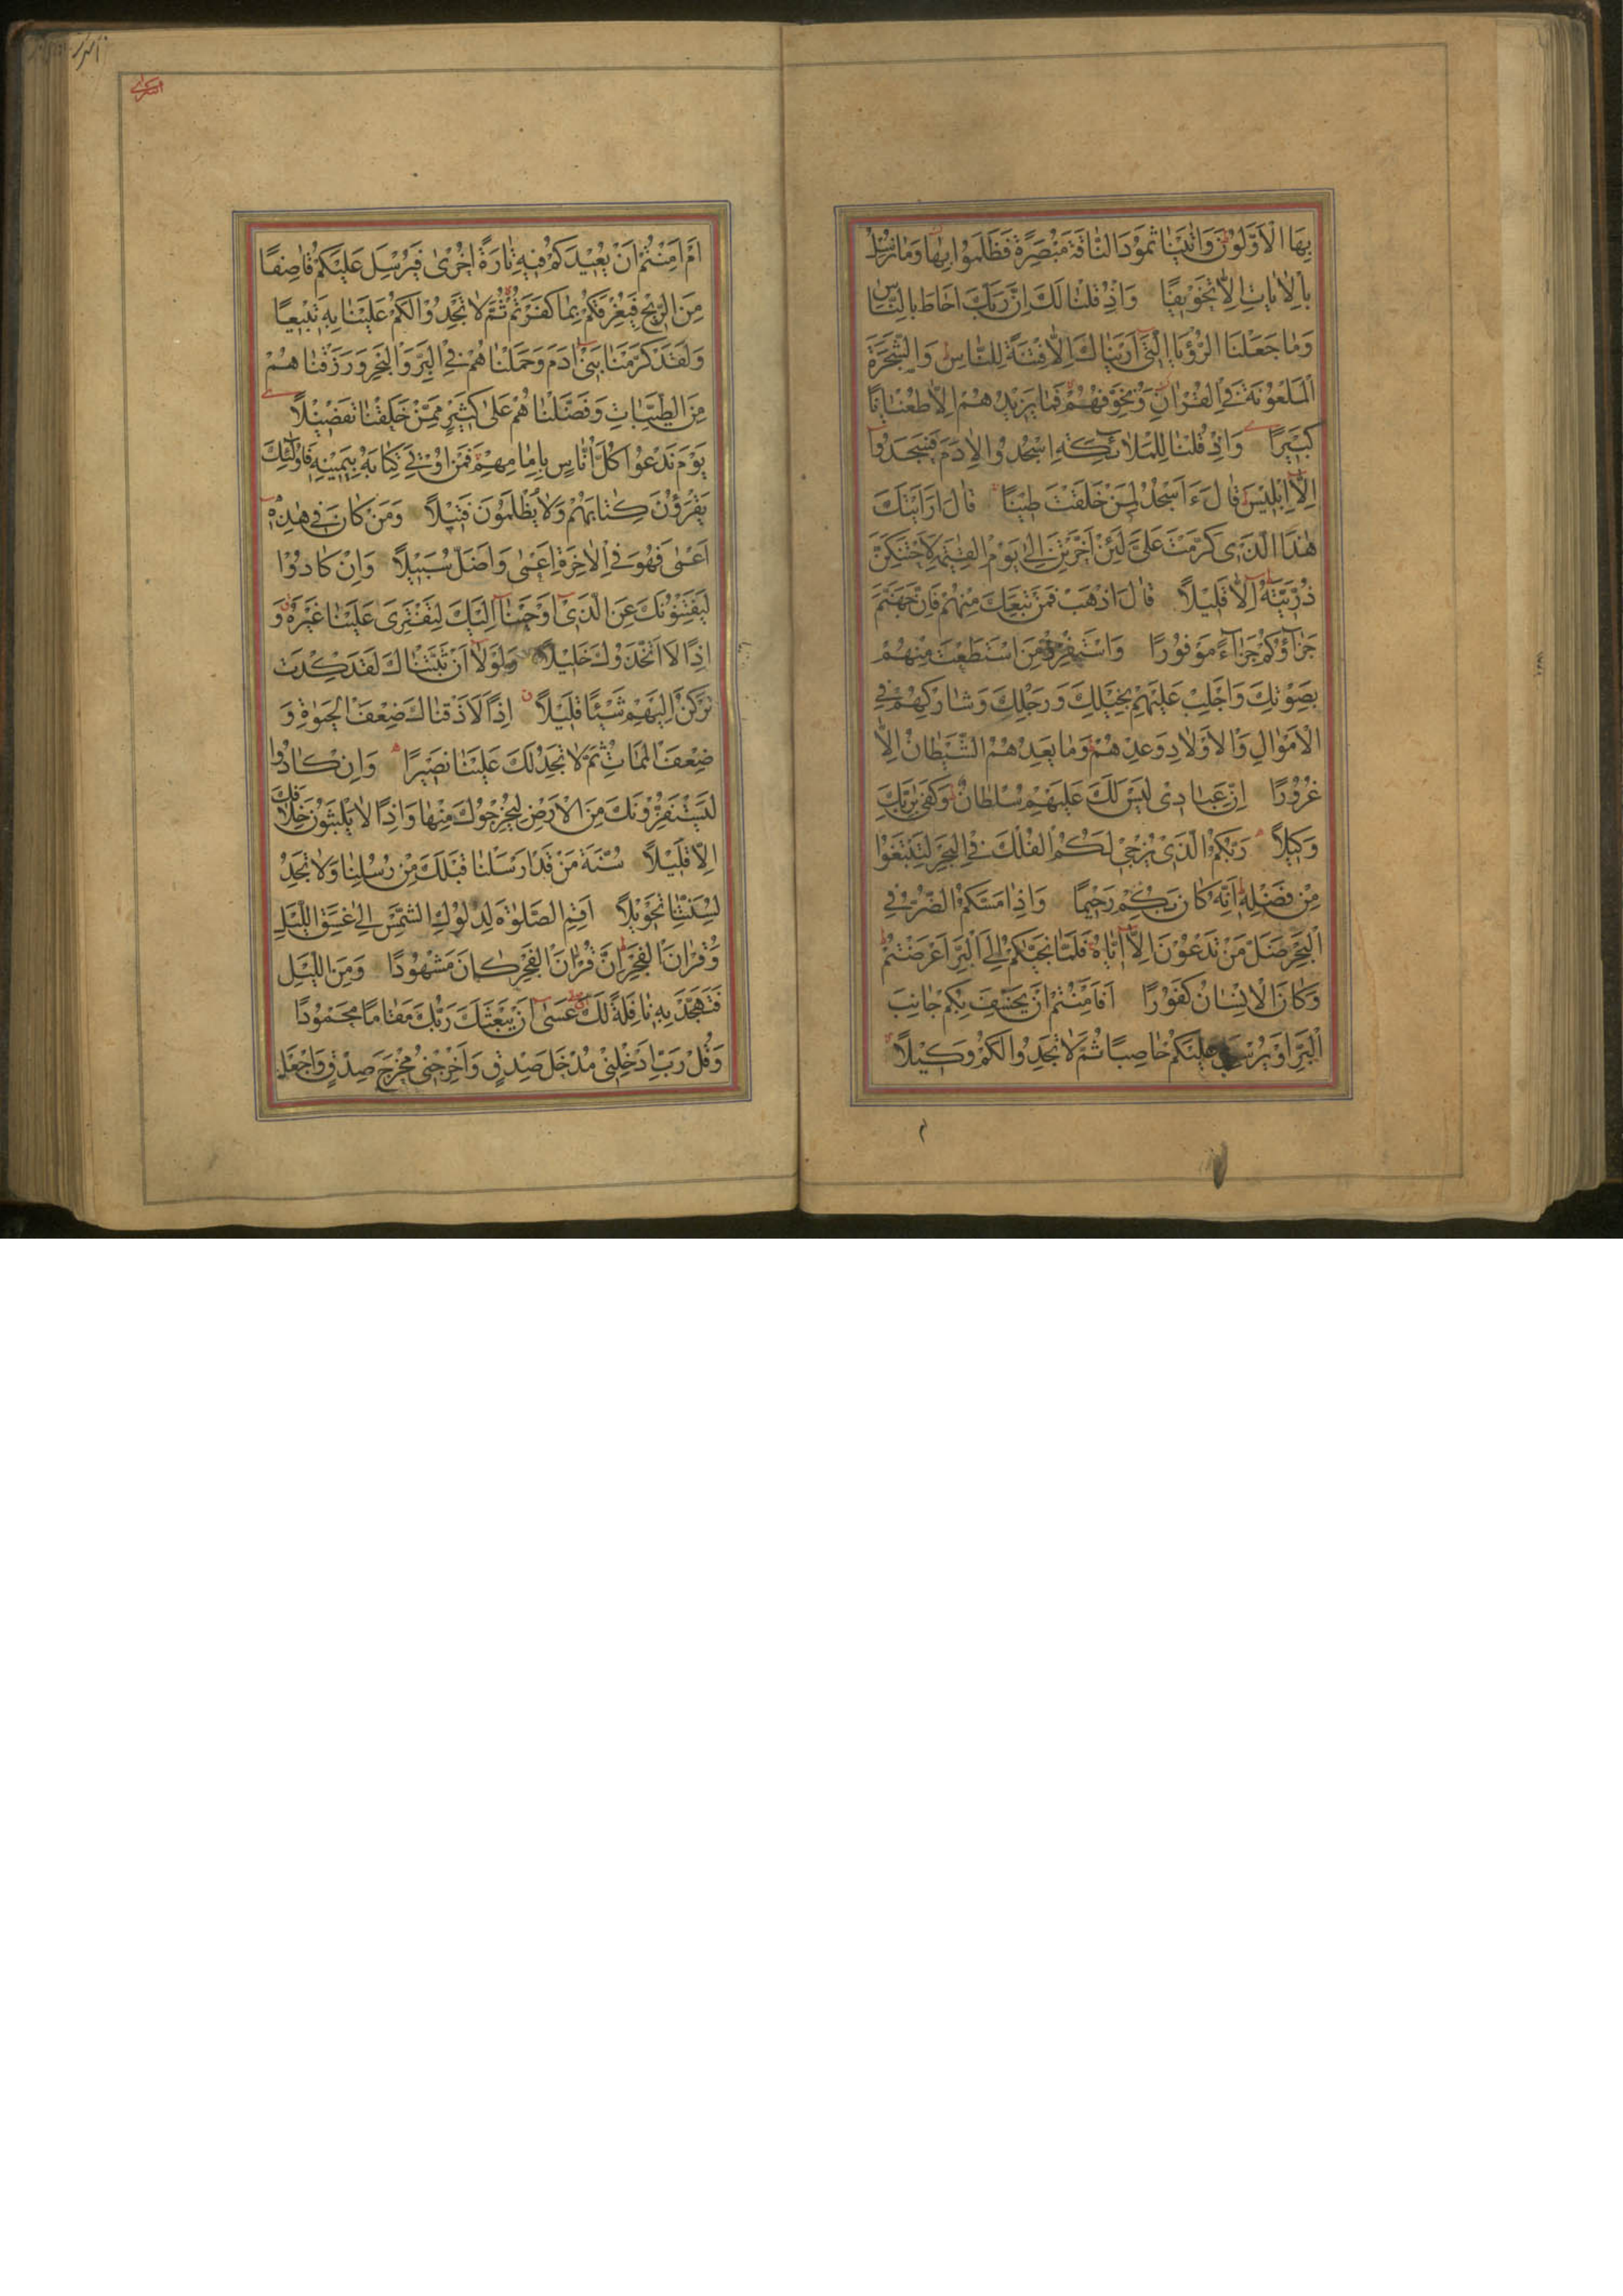 بِهَا الْاَوَّلُونَ وَاٰتَيْنَا ثَمُودَ النَّاقَةَ مُبْصِرَةً فَظَلَمُوا بِهَا وَمَا نُرْسِلُ
بِالْاٰيَاتِ اِلَّا تَخْوِيفًا وَاِذْ قُلْنَا لَكَ اِنَّ رَبَّكَ اَحَاطَ بِالنَّاسِ
وَمَا جَعَلْنَا الرُّؤْيَا الَّتِي اَرَيْنَاكَ اِلَّا فِتْنَةً لِلنَّاسِ وَالشَّجَرَةَ
الْمَلْعُونَةَ فِي الْقُرْاٰنِ وَنُخَوِّفُهُمْ فَمَا يَزِيدُهُمْ اِلَّا طُغْيَانًا
كَبِيرًا وَاِذْ قُلْنَا لِلْمَلَائِكَةِ اسْجُدُوا لِاٰدَمَ فَسَجَدُوا
اِلَّا اِبْلِيسَ قَالَ ءَاَسْجُدُ لِمَنْ خَلَقْتَ طِينًا قَالَ اَرَاَيْتَكَ
هٰذَا الَّذِي كَرَّمْتَ عَلَيَّ لَئِنْ اَخَّرْتَنِ اِلٰى يَوْمِ الْقِيٰمَةِ لَاَحْتَنِكَنَّ
ذُرِّيَّتَهُ اِلَّا قَلِيلًا قَالَ اذْهَبْ فَمَنْ تَبِعَكَ مِنْهُمْ فَاِنَّ جَهَنَّمَ
جَزَاؤُكُمْ جَزَاءً مَوْفُورًا وَاسْتَفْزِزْ مَنِ اسْتَطَعْتَ مِنْهُمْ
بِصَوْتِكَ وَاَجْلِبْ عَلَيْهِمْ بِخَيْلِكَ وَرَجِلِكَ وَشَارِكْهُمْ فِي
الْاَمْوَالِ وَالْاَوْلَادِ وَعِدْهُمْ وَمَا يَعِدُهُمُ الشَّيْطَانُ اِلَّا
غُرُورًا اِنَّ عِبَادِي لَيْسَ لَكَ عَلَيْهِمْ سُلْطَانٌ وَكَفٰى بِرَبِّكَ
وَكِيلًا رَبُّكُمُ الَّذِي يُزْجِي لَكُمُ الْفُلْكَ فِي الْبَحْرِ لِتَبْتَغُوا
مِنْ فَضْلِهِ اِنَّهُ كَانَ بِكُمْ رَحِيمًا وَاِذَا مَسَّكُمُ الضُّرُّ فِي
الْبَحْرِ ضَلَّ مَنْ تَدْعُونَ اِلَّا اِيَّاهُ فَلَمَّا نَجّٰيكُمْ اِلَى الْبَرِّ اَعْرَضْتُمْ
وَكَانَ الْاِنْسَانُ كَفُورًا اَفَاَمِنْتُمْ اَنْ يَخْسِفَ بِكُمْ جَانِبَ
الْبَرِّ اَوْ يُرْسِلَ عَلَيْكُمْ حَاصِبًا ثُمَّ لَا تَجِدُوا لَكُمْ وَكِيلًا
اَمْ اَمِنْتُمْ اَنْ يُعِيدَكُمْ فِيهِ تَارَةً اُخْرٰى فَيُرْسِلَ عَلَيْكُمْ قَاصِفًا
مِنَ الرِّيحِ فَيُغْرِقَكُمْ بِمَا كَفَرْتُمْ ثُمَّ لَا تَجِدُوا لَكُمْ عَلَيْنَا بِهِ تَبِيعًا
وَلَقَدْ كَرَّمْنَا بَنِي اٰدَمَ وَحَمَلْنَاهُمْ فِي الْبَرِّ وَالْبَحْرِ وَرَزَقْنَاهُمْ
مِنَ الطَّيِّبَاتِ وَفَضَّلْنَاهُمْ عَلٰى كَثِيرٍ مِمَّنْ خَلَقْنَا تَفْضِيلًا
يَوْمَ نَدْعُوا كُلَّ اُنَاسٍ بِاِمَامِهِمْ فَمَنْ اُوتِيَ كِتَابَهُ بِيَمِينِهِ فَاُولٰئِكَ
يَقْرَؤُنَ كِتَابَهُمْ وَلَا يُظْلَمُونَ فَتِيلًا وَمَنْ كَانَ فِي هٰذِهِ
اَعْمٰى فَهُوَ فِي الْاٰخِرَةِ اَعْمٰى وَاَضَلُّ سَبِيلًا وَاِنْ كَادُوا
لَيَفْتِنُونَكَ عَنِ الَّذِي اَوْحَيْنَا اِلَيْكَ لِتَفْتَرِيَ عَلَيْنَا غَيْرَهُ وَ
اِذًا لَاتَّخَذُوكَ خَلِيلًا وَلَوْلَا اَنْ ثَبَّتْنَاكَ لَقَدْ كِدْتَ
تَرْكَنُ اِلَيْهِمْ شَيْئًا قَلِيلًا اِذًا لَاَذَقْنَاكَ ضِعْفَ الْحَيٰوةِ وَ
ضِعْفَ الْمَمَاتِ ثُمَّ لَا تَجِدُ لَكَ عَلَيْنَا نَصِيرًا وَاِنْ كَادُوا
لَيَسْتَفِزُّونَكَ مِنَ الْاَرْضِ لِيُخْرِجُوكَ مِنْهَا وَاِذًا لَا يَلْبَثُونَ خِلَافَكَ
اِلَّا قَلِيلًا سُنَّةَ مَنْ قَدْ اَرْسَلْنَا قَبْلَكَ مِنْ رُسُلِنَا وَلَا تَجِدُ
لِسُنَّتِنَا تَحْوِيلًا اَقِمِ الصَّلٰوةَ لِدُلُوكِ الشَّمْسِ اِلٰى غَسَقِ اللَّيْلِ
وَقُرْاٰنَ الْفَجْرِ اِنَّ قُرْاٰنَ الْفَجْرِ كَانَ مَشْهُودًا وَمِنَ اللَّيْلِ
فَتَهَجَّدْ بِهِ نَافِلَةً لَكَ عَسٰى اَنْ يَبْعَثَكَ رَبُّكَ مَقَامًا مَحْمُودًا
وَقُلْ رَبِّ اَدْخِلْنِي مُدْخَلَ صِدْقٍ وَاَخْرِجْنِي مُخْرَجَ صِدْقٍ وَاجْعَلْ